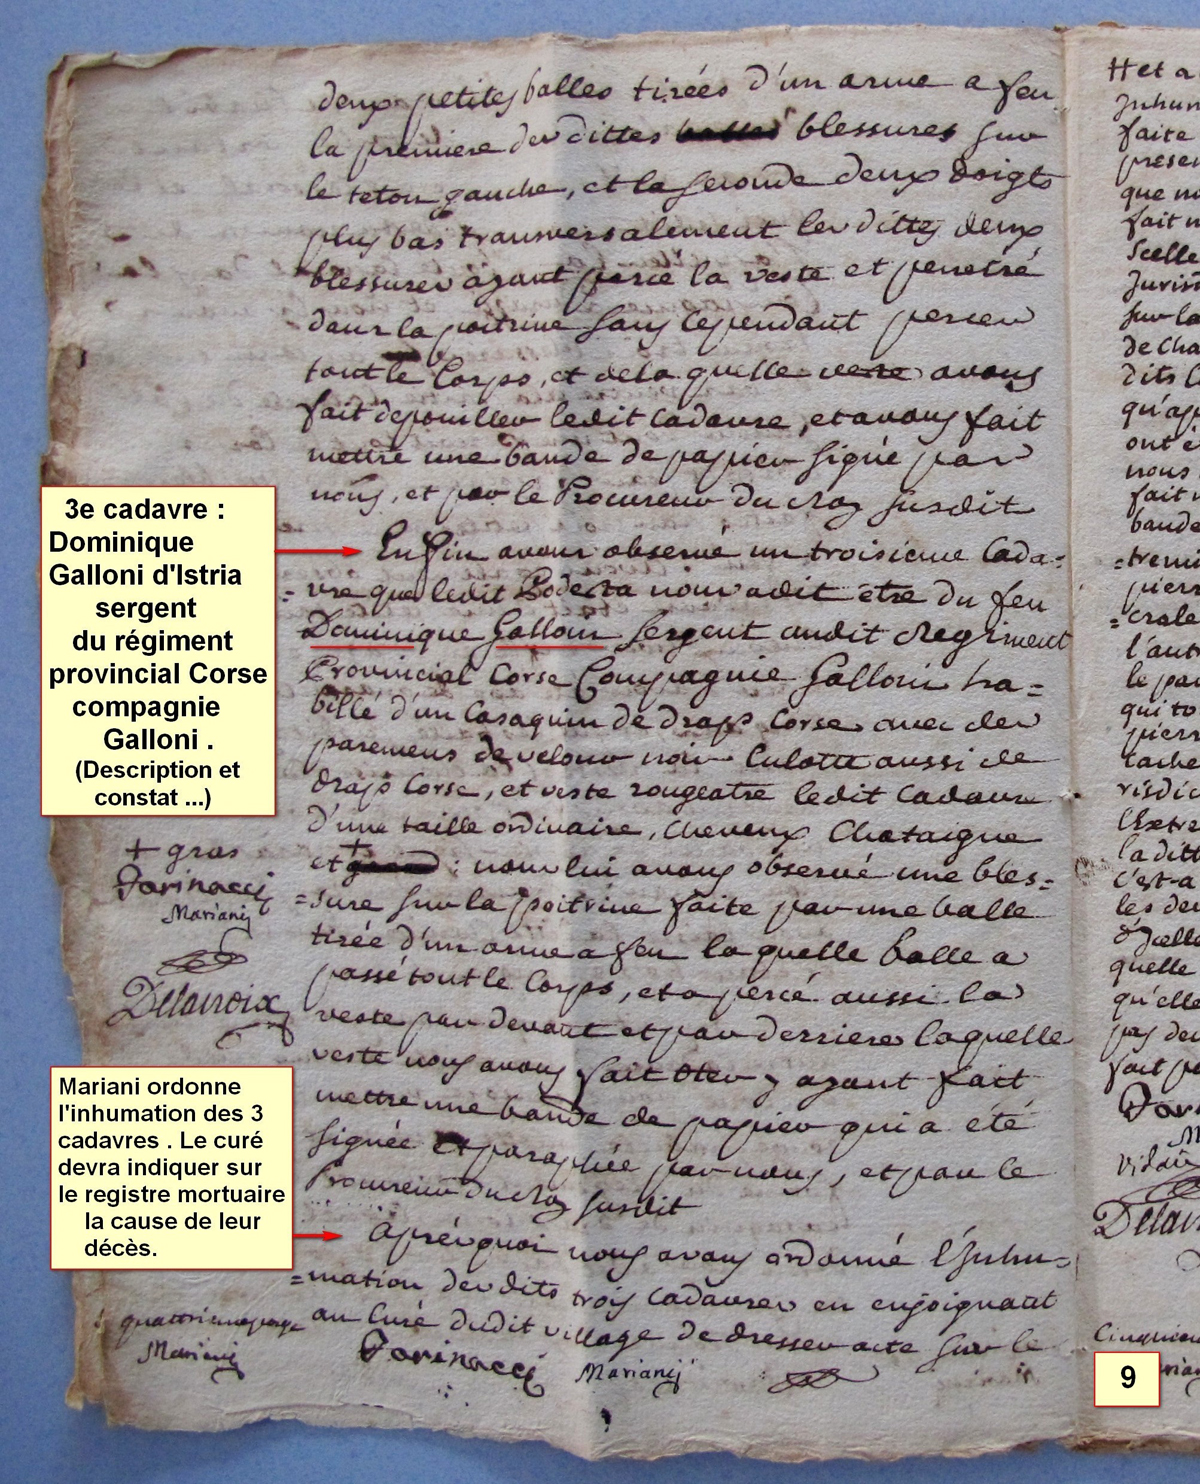 deux petites balles tirées d'un arme a feu
la premiere des dittes balles blessures sur
le teton gauche, et la seconde deux doigts
plus bas transversalement les dittes deux
blessures ayant percé la veste et penetré
dans la poitrine sans cependant percer
tout le Corps, et de la quelle veste avons
fait depouiller ledit Cadavre, et avons fait
mettre une bande de papier signé par
nous, et par le Procureur du Roy susdit
Enfin avons observé un troisieme Cada=
=vre que ledit Podesta nous a dit etre du feu
Dominique Galloni sergent audit Regiment
Provincial Corse Compagnie Galloni ha=
billé d'un Casaquin de drap Corse avec des
paremens de velour noir Culotte aussi de
drap Corse, et veste rougeatre ledit Cadavre
d'une taille ordinaire, Cheveux Chataigne
et + : nous lui avons observé une bles=
=sure sur la poitrine faite par une balle
tirée d'un arme a feu la quelle balle a
passé tout le Corps, et a percé aussi la
veste par devant et par derriere laquelle
veste nous avons fait oter y ayant fait
mettre une bande de papier qui a été
signée et paraphée par nous, et par le
Procureur du Roy susdit
Après quoi nous avons ordonné l'Inhu=
=mation des dits trois Cadavres en enjoignant
au Curé dudit village de dresser acte sur le
Farinacci Marianij
3e cadavre :
Dominique
Galloni d'Istria
sergent
du régiment
provincial Corse
compagnie
Galloni .
(Description et
constat ...)
+ gras
Farinacci
Marianij
Delacroix
Mariani ordonne
l'inhumation des 3
cadavres . Le curé
devra indiquer sur
le registre mortuaire
la cause de leur
décès.
quattrieme page
Marianij
Et a
Inhum
faite
presen
que no
fait m
Scelle
Juris
sur la
de Cha
dits l
qu'ap
ont é
nous
fait m
bande
=tremi
pierr
=crale
l'autr
le par
qui to
pierr
tache
risdic
l'Extre
la ditt
c'est-a
les deu
quelle
qu'elle
pas deu
fait pa
Farin
M
Vidau
Delacr
Cinquiem
9